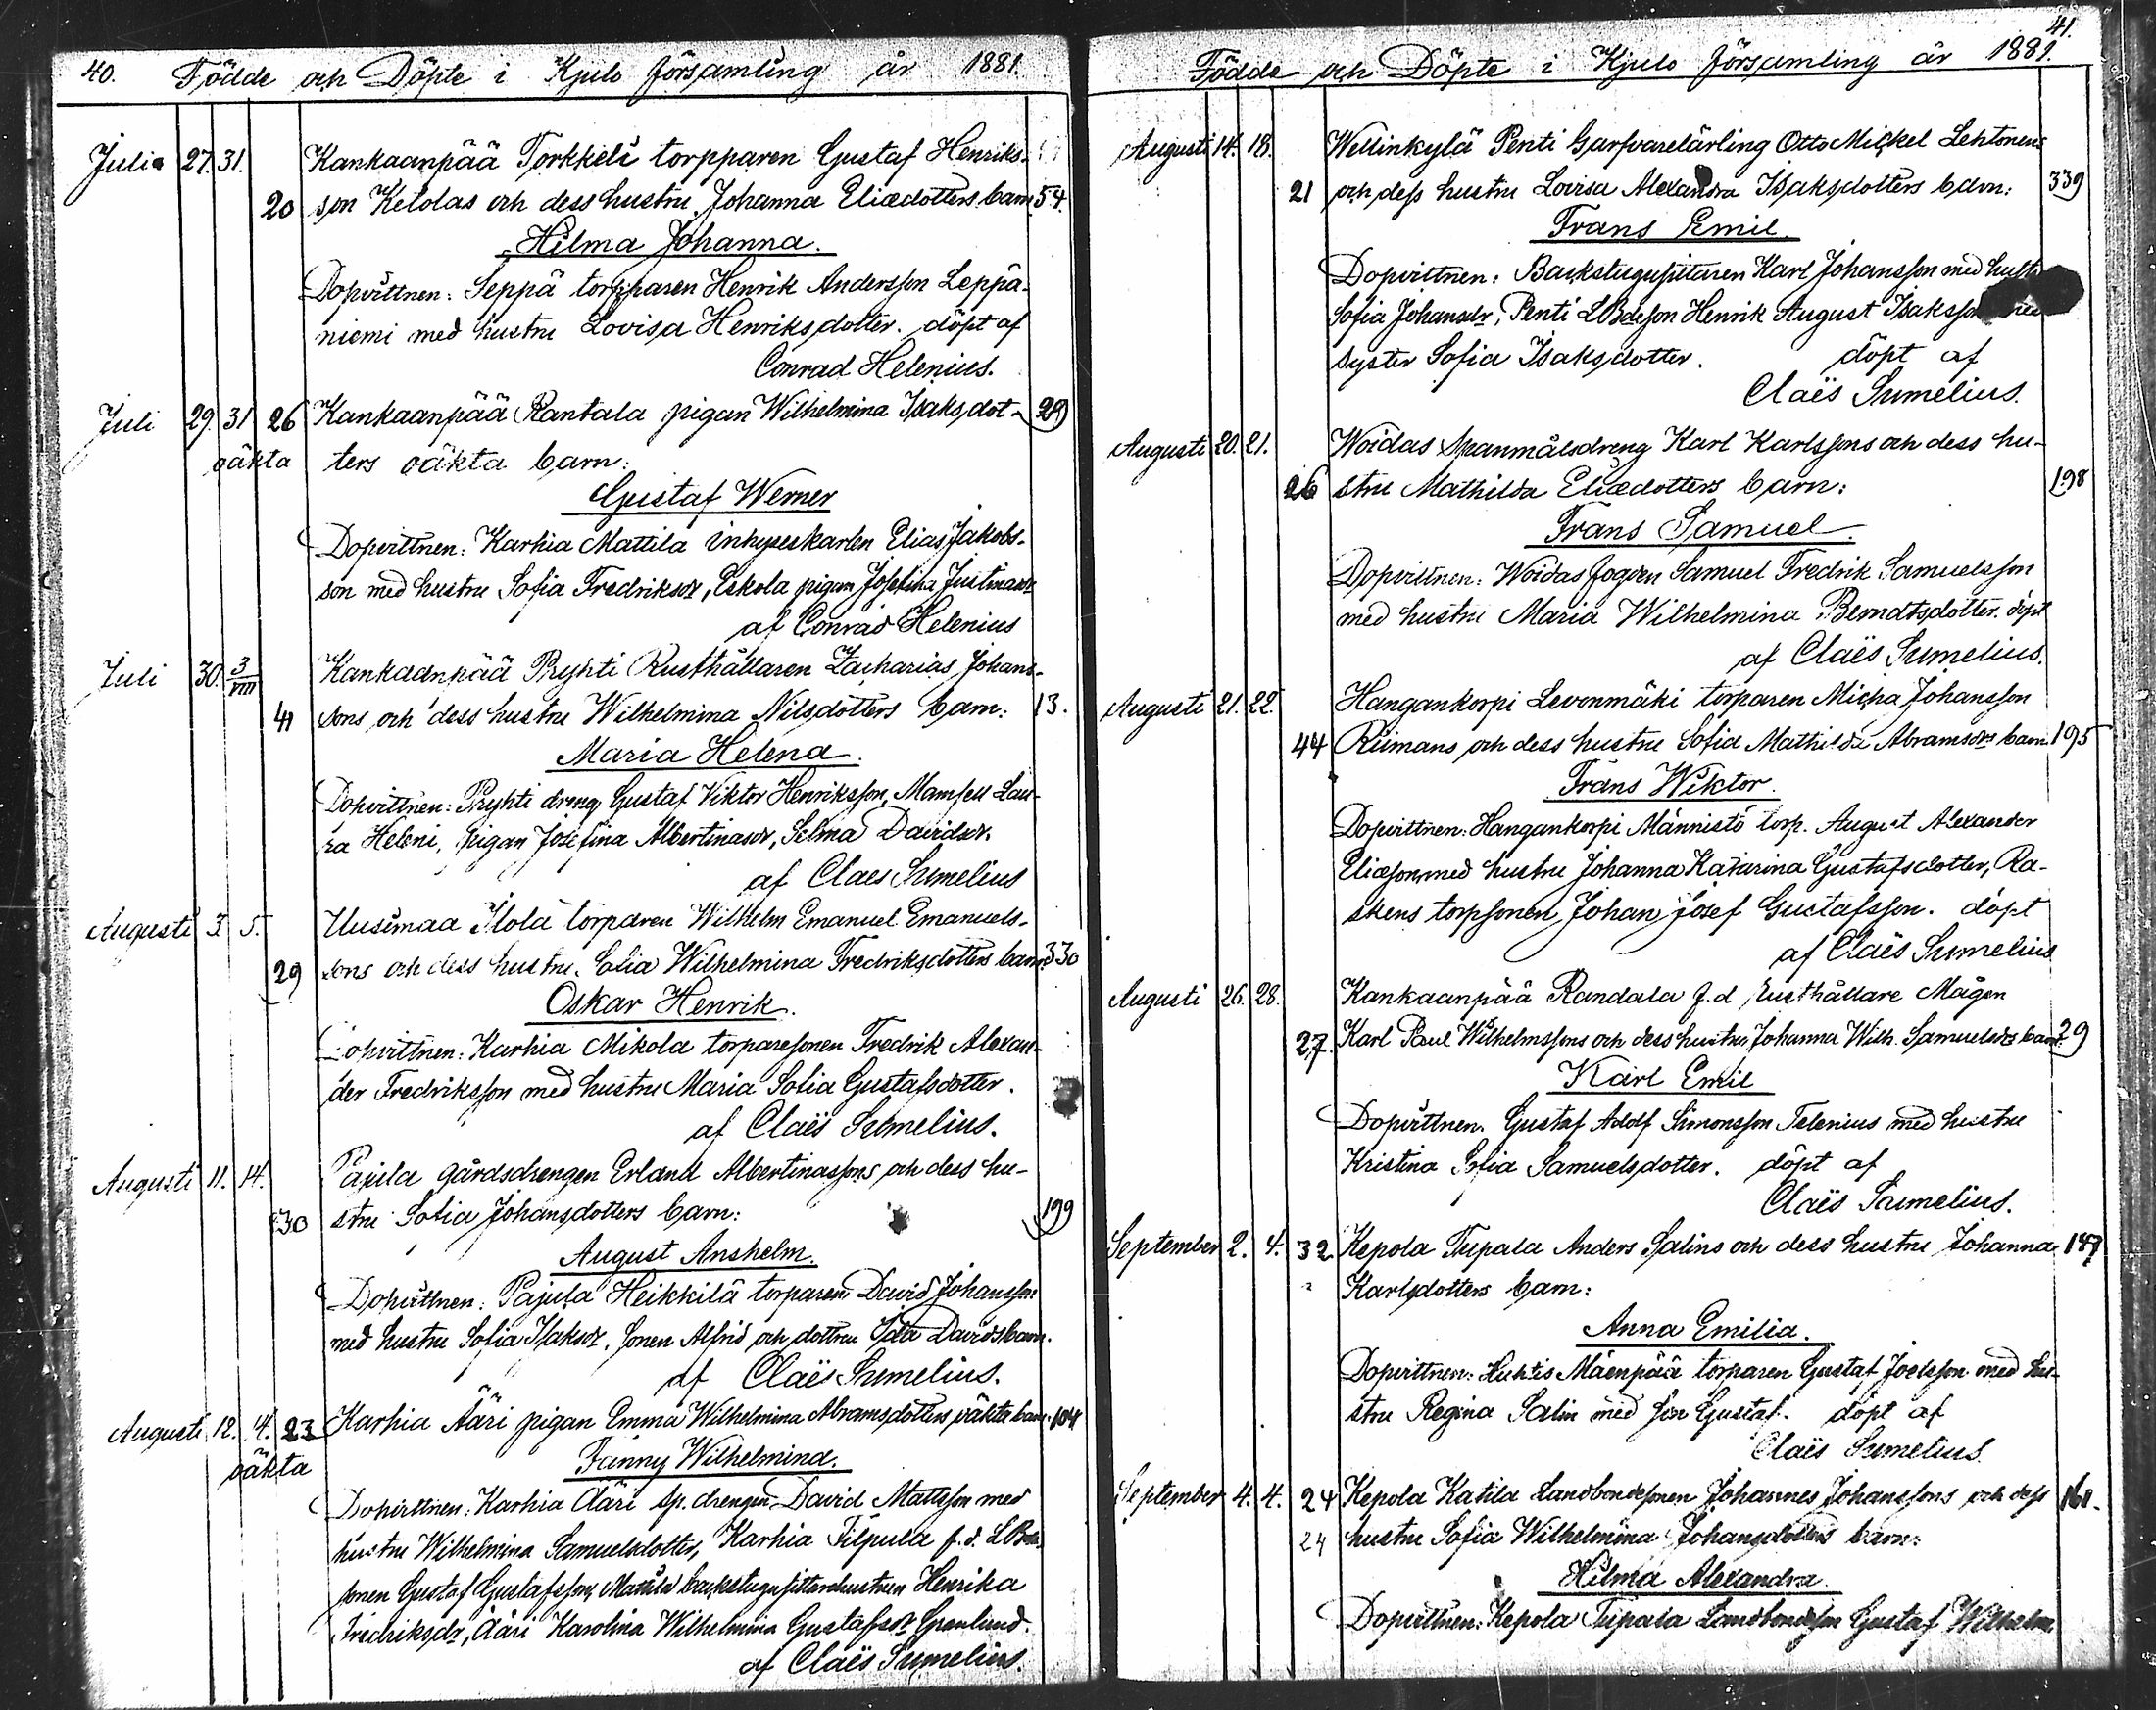 40. Födde och Döpte i Kjulo församling år 1881.
Julia 27. 31. Kankaanpää Torkkeli torpparen Gustaf Henriks-
20 son Ketolas och dess hustru Johanna Eliædotters barn 54.
Hilma Johanna.
Dopvittnen: Seppä torpparen Henrik Andersson Leppä-
niemi med hustru Lovisa Henriksdotter. döpt af
Conrad Helenius.
Juli 29. 31 26 Kankaanpää Rantala pigan Wilhelmina Isaksdot- 29
oäkta ters oäkta barn:
Gustaf Werner
Dopvittnen: Karhia Mattila inhyseskarlen Elias Jakobs-
son med hustru Sofia Fredriksdr, Eskola pigan Josefina Justinasdr
af Conrad Helenius
Juli 30. 3/VIII Kankaanpää Pryhti Rusthållaren Zacharias Johans-
41 sons och dess hustru Wilhelmina Nilsdotters barn: 13.
Maria Helena.
Dopvittnen: Pryhti dreng Gustaf Viktor Henriksson, Mamsell Lau-
ra Heleni, pigan Josefina Albertinasdr, Selma Davidsdr.
af Claes Sumelius
Augusti 3. 5. Uusimaa Ilola torparen Wilhelm Emanuel Emanuels-
29 sons och dess hustru Sofia Wilhelmina Fredriksdotters barn: 330
Oskar Henrik.
Dopvittnen: Karhia Mikola torparesonen Fredrik Alexan-
der Fredriksson med hustru Maria Sofia Gustafsdotter.
af Claës Sumelius.
Augusti 11. 14. Pajula gårdsdrengen Erland Albertinassons och dess hu-
30 stru Sofia Johansdotters barn: 199
August Anshelm.
Dopvittnen: Pajula Heikkilä torparen David Johansson
med hustru Sofia Isaksdr, sonen Alfrid och dottren Ida Davidsbarn.
af Claës Sumelius.
Augusti 12. 14. 23 Karhia Ääri pigan Emma Wilhelmina Abramsdotters oäkta barn: 104
oäkta Fanny Wilhelmina.
Dopvittnen: Karhia Ääri sp. drengen David Mattsson med
hustru Wilhelmina Samuelsdotter, Karhia Filpula f.d. LBde-
sonen Gustaf Gustafsson, Mattila backstugusittarehustrun Henrika
Fredriksdr, Ääri Karolina Wilhelmina Gustafsdr Grenlund.
af Claës Sumelius.
41.
Födde och Döpte i Kjulo församling år 1881.
Augusti 14. 18. Wellinkylä Penti Garfvarelärling Otto Mickel Lehtonens
21 och dess hustru Lovisa Alexandra Isaksdotters barn: 339
Frans Emil.
Dopvittnen: Backstugusittaren Karl Johansson med hustru
Sofia Johansdr, Penti LBdeson Henrik August Isaksson
syster Sofia Isaksdotter. döpt af
Claës Sumelius.
Augusti 20. 21. Woidas spanmålsdreng Karl Karlssons och dess hu-
26 stru Mathilda Eliædotters barn: 198
Frans Samuel.
Dopvittnen: Woidas fogden Samuel Fredrik Samuelsson
med hustru Maria Wilhelmina Berndtsdotter. döpt
af Claës Sumelius.
Augusti 21. 22. Hangankorpi Levonmäki torparen Micha Johansson
44 Riimans och dess hustru Sofia Mathilda Abramsdrs barn: 195
Frans Wiktor.
Dopvittnen: Hangankorpi Männistö torp. August Alexander
Eliæson med hustru Johanna Katarina Gustafsdotter, Ra-
skens torpsonen Johan Josef Gustafsson. döpt
af Claës Sumelius
Augusti 26. 28. Kankaanpää Randala f.d Rusthållare Mågen
27. Karl Paul Wilhelmssons och dess hustru Johanna Wilh. Samuelsdrs barn: 29
Karl Emil
Dopvittnen. Gustaf Adolf Simonsson Telenius med hustru
Kristina Sofia Samuelsdotter. döpt af
Claës Sumelius.
September 2. 4. 32 Kepola Tupala Anders Salins och dess hustru Johanna 147
Karlsdotters barn:
Anna Emilia.
Dopvittnen: Huhtis Mäenpää torparen Gustaf Joelsson med hu-
stru Regina Salin med son Gustaf. döpt af
Claës Sumelius.
September 4. 4. 24 Kepola Katila Landbondesonen Johannes Johanssons och dess 161.
24 hustru Sofia Wilhelmina Johansdotters barn:
Hilma Alexandra.
Dopvittnen: Kepola Tupala Landbondeson Gustaf Wilhelm